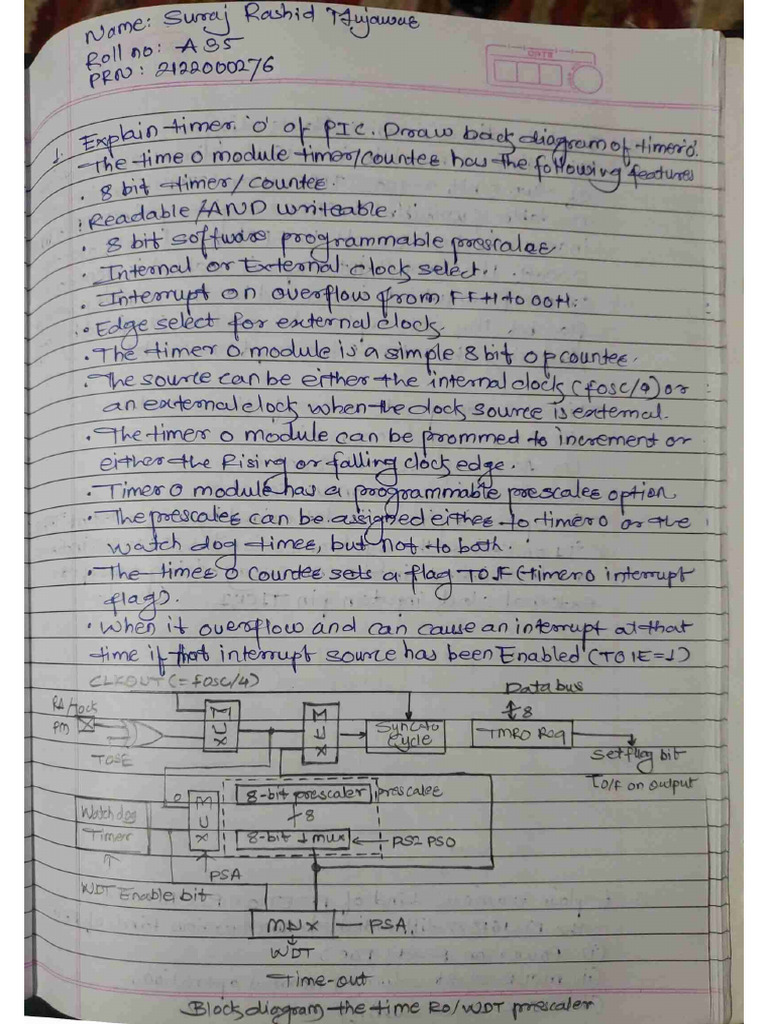 Name: Suraj Rashid Mujawar
Roll no: A 35
PRN: 2122000276
DATE
1. Explain timer '0' of PIC. Draw back diagram of timer 0.
The time 0 module timer/countee has the following features
• 8 bit timer/countee.
• Readable/AND writeable.
• 8 bit software programmable prescalee
• Internal or External clock select.
• Interrupt on overflow from FFH to 00H.
• Edge select for external clock.
• The timer 0 module is a simple 8 bit op countee.
• The source can be either the internal clock (fosc/4) or
an external clock when the clock source is external.
• The timer 0 module can be prommed to increment or
either the Rising or falling clock edge.
• Timer 0 module has a programmable prescalee option
• The prescalee can be assigned eithee to timer 0 or the
watch dog timee, but not to both.
• The timee 0 countee sets a flag TOIF (timer 0 interrupt
flag).
• When it overflow and can cause an interrupt at that
time if that interrupt source has been Enabled (TOIE=1)
CLKOUT (= fosc/4)
Data bus
8
RA/tock
PM
MUX
MUX
Sync 2 to
Cycle
TMRO Reg
TOSE
Set flag bit
TO/F on output
0
MUX
8-bit prescaler
prescalee
8
Watch dog
Timer
8-bit 1 mux
PS2 PS0
PSA
WDT Enable bit
MUX
PSA
WDT
Time-out
Block diagram the time RO/WDT prescaler